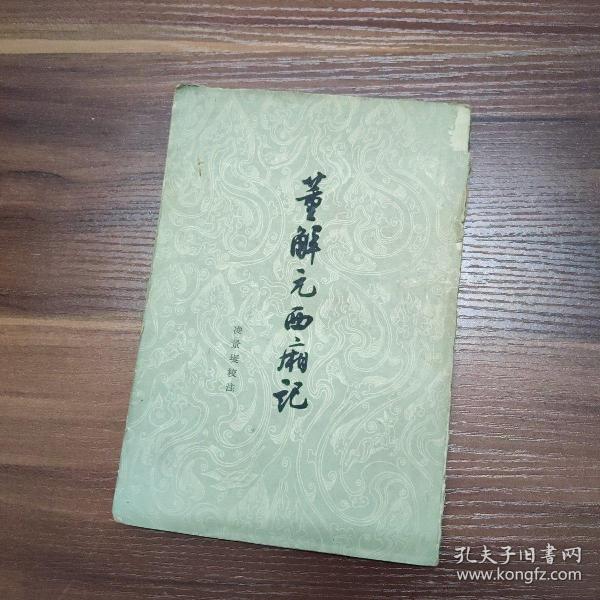 董解元西厢记
凌景埏校注
孔夫子旧书网
www.kongfz.com